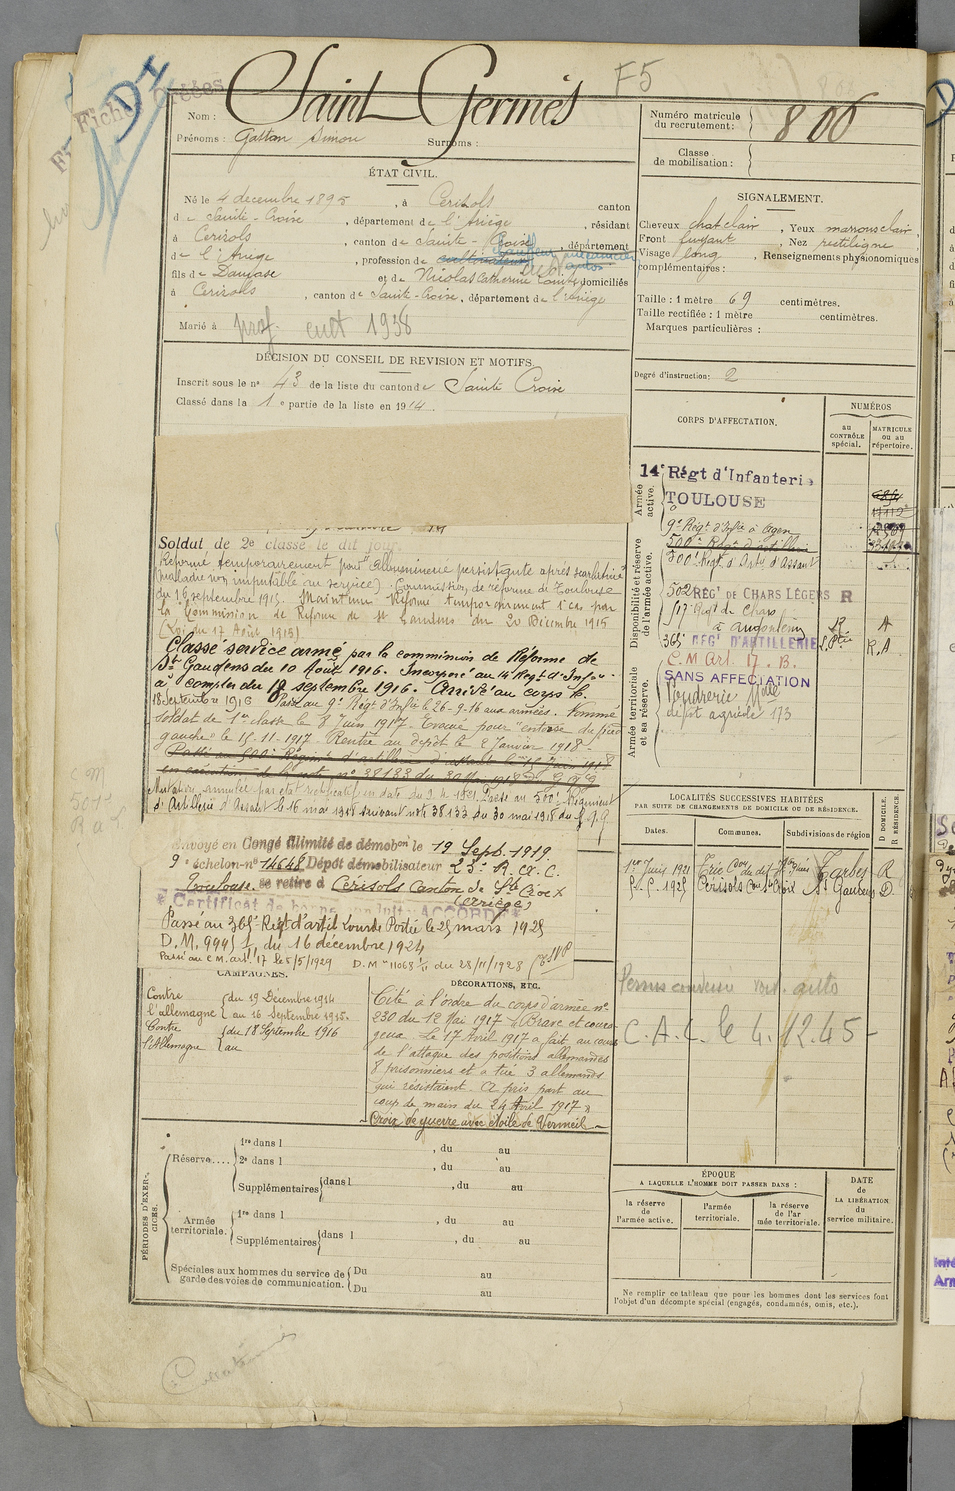 F5
Nom : Saint Germés
Prénoms : Gattan Simon Surnoms :
Numéro matricule du recrutement : 806
Classe de mobilisation :
ÉTAT CIVIL.
Né le 4 décembre 1895, à Cerizols canton
de Sainte-Croix, département de l'Ariège, résidant
à Cerizols, canton de Sainte-Croix, département
de l'Ariège, profession de cultivateur
fils de et de Nicolas Catherine domiciliés
à Cerizols, canton de Sainte-Croix, département de l'Ariège
Marié à
prof. cult 1938
SIGNALEMENT.
Cheveux chat clair, Yeux marrons clair,
Front fuyant, Nez rectiligne
Visage long, Renseignements physionomiques
complémentaires :
Taille : 1 mètre 69 centimètres.
Taille rectifiée : 1 mètre centimètres.
Marques particulières :
Degré d'instruction : 2
DÉCISION DU CONSEIL DE REVISION ET MOTIFS.
Inscrit sous le n° 43 de la liste du canton de Sainte Croix
Classé dans la 1e partie de la liste en 1914.
Soldat de 2e classe le dit jour
Réformé temporairement pour albuminurie persistante après scarlatine
(maladie non imputable au service). Commission de réforme de Toulouse
du 16 septembre 1915. Maintenu Réformé temporairement 1° cas par
la Commission de Réforme de St Gaudens du 20 Décembre 1915
(Loi du 17 Août 1915)
Classé service armé par la commission de Réforme de
St Gaudens du 10 Août 1916. Incorporé au 14e Régt d'Infie
à compter du 18 septembre 1916. Arrivé au corps le
18 Septembre 1916 Passé au 9e Régt d'Infie le 26-9-16 aux armées. Nommé
soldat de 1ere classe le 8 Juin 1917. Evacué pour "entorse du pied
gauche" le 15-11-1917. Rentré au dépôt le 2 Janvier 1918.
Passé au 500e Régiment d'artillerie d'assaut le 15 Juin 1918
en exécution de la note n° 38133 du 30 Mai 1918 du G.Q.G
Mutation annulée par état rectificatif en date du Passé au 500e Régiment
d'Artillerie d'Assaut le 16 mai 1918 suivant note 38133 du 30 mai 1918 du G.Q.G
Envoyé en Congé illimité de démobon le 19 Sept. 1919
9e échelon-n° 14648 Dépôt démobilisateur 23e R. A. C.
Toulouse se retire à Cérisols Canton de Ste Croix
(Ariège)
Certificat de bonne conduite ACCORDÉ
Passé au 365e Régt d'artil Lourde Portée le 25 mars 1925
D.M. 9995 1/11 du 16 décembre 1924
Passé au C.M. art. 17 le 5/5/1929 D. M n° 11068 1/11 du 28/11/1928
CORPS D'AFFECTATION.
NUMÉROS
au CONTRÔLE spécial.
MATRICULE ou au répertoire.
Armée active.
Disponibilité et réserve de l'armée active.
Armée territoriale et sa réserve.
14e Régt d'Infanterie
TOULOUSE
9e Régt d'Infie à Agen
500e Régt d'artillerie
500e Régt d'Arty d'Assaut
502 RÉGt de CHARS LÉGERS R
517e Régt de chars
à Angoulême R A
365 RÉGt D'ARTILLERIE L. Ptée R.A
C. M Art. 17. B.
SANS AFFECTATION
Poudrerie Nlle
dépôt agricole 173
LOCALITÉS SUCCESSIVES HABITÉES
PAR SUITE DE CHANGEMENTS DE DOMICILE OU DE RÉSIDENCE.
D DOMICILE. R RÉSIDENCE.
Dates. Communes. Subdivisions de région
1er Juin 1921 Trie Con du dit Htes Pnées Tarbes R
1925 Cérisols Con Ste Croix St Gaudens D.
Permis conduire voit. auto
C.A.L. le 4.12.45
CAMPAGNES.
Contre l'allemagne du 19 Décembre 1914
au 16 Septembre 1915.
Contre l'Allemagne du 18 Septembre 1916
au
DÉCORATIONS, ETC.
Cité à l'ordre du corps d'armée n°
230 du 12 Mai 1917 "Brave et coura-
geux. Le 17 Avril 1917 a fait au cours
de l'attaque des positions allemandes
8 prisonniers et a tué 3 allemands
qui résistaient. A pris part au
coup de main du 24 Avril 1917"
Croix de guerre avec étoile de Vermeil
PÉRIODES D'EXERCICES.
Réserve.... 1re dans l , du au
2e dans l , du au
Supplémentaires dans l , du au
Armée territoriale. 1re dans l , du au
Supplémentaires dans l , du au
Spéciales aux hommes du service de garde des voies de communication. Du au
Du au
ÉPOQUE
A LAQUELLE L'HOMME DOIT PASSER DANS :
la réserve de l'armée active.
l'armée territoriale.
la réserve de l'armée territoriale.
DATE de LA LIBÉRATION du service militaire.
Ne remplir ce tableau que pour les hommes dont les services font
l'objet d'un décompte spécial (engagés, condamnés, omis, etc.).